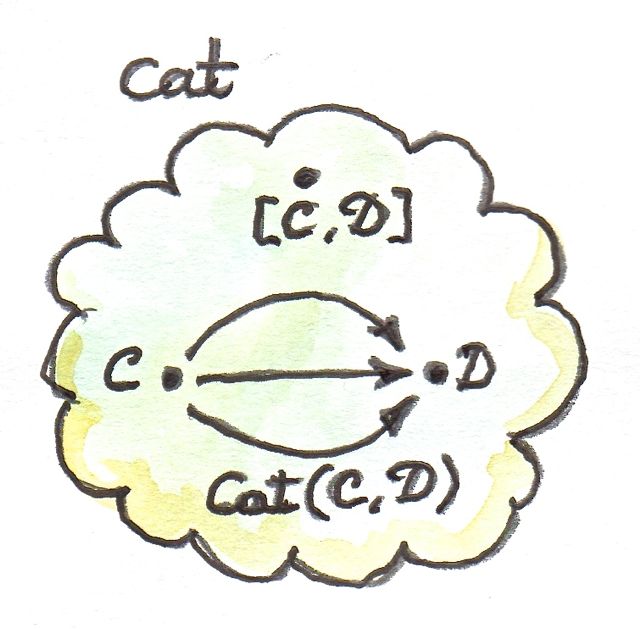 Cat
[C,D]
C
D
Cat(C,D)